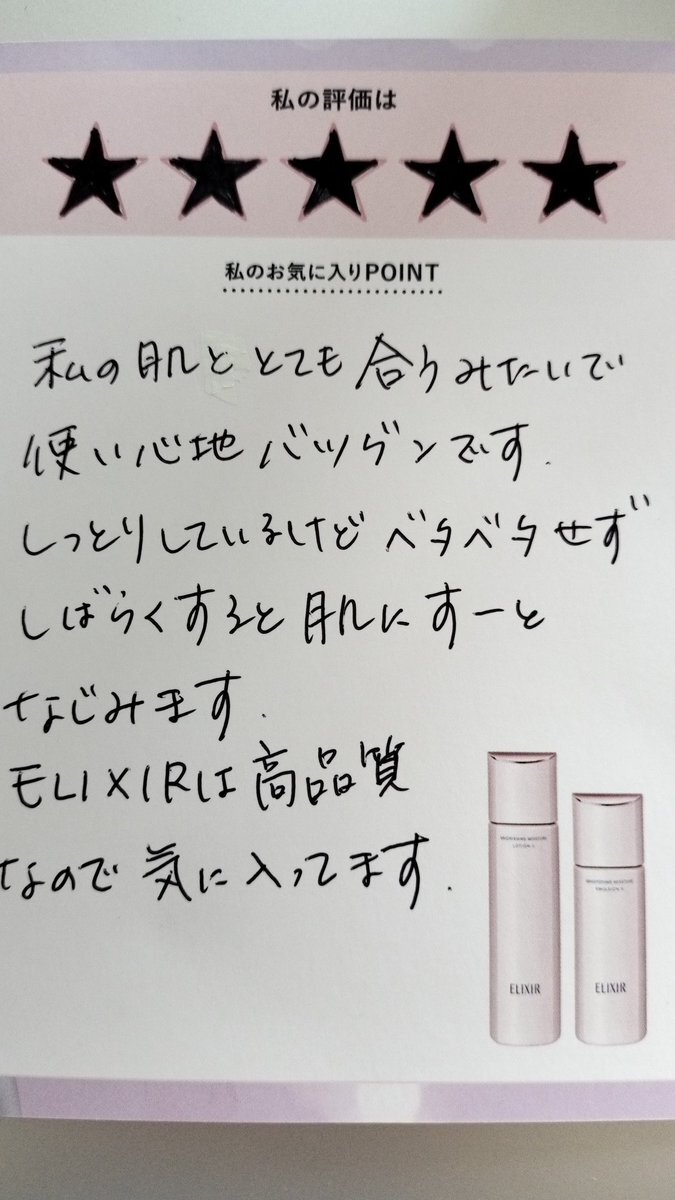 私の評価は
★★★★★
私のお気に入りPOINT
私の肌ととても合うみたいで
使い心地バツグンです.
しっとりしているけどベタベタせず
しばらくすると肌にすーと
なじみます.
ELIXIRは高品質
なので気に入ってます.
BRIGHTENING MOISTURE
LOTION
BRIGHTENING MOISTURE
EMULSION
ELIXIR
ELIXIR